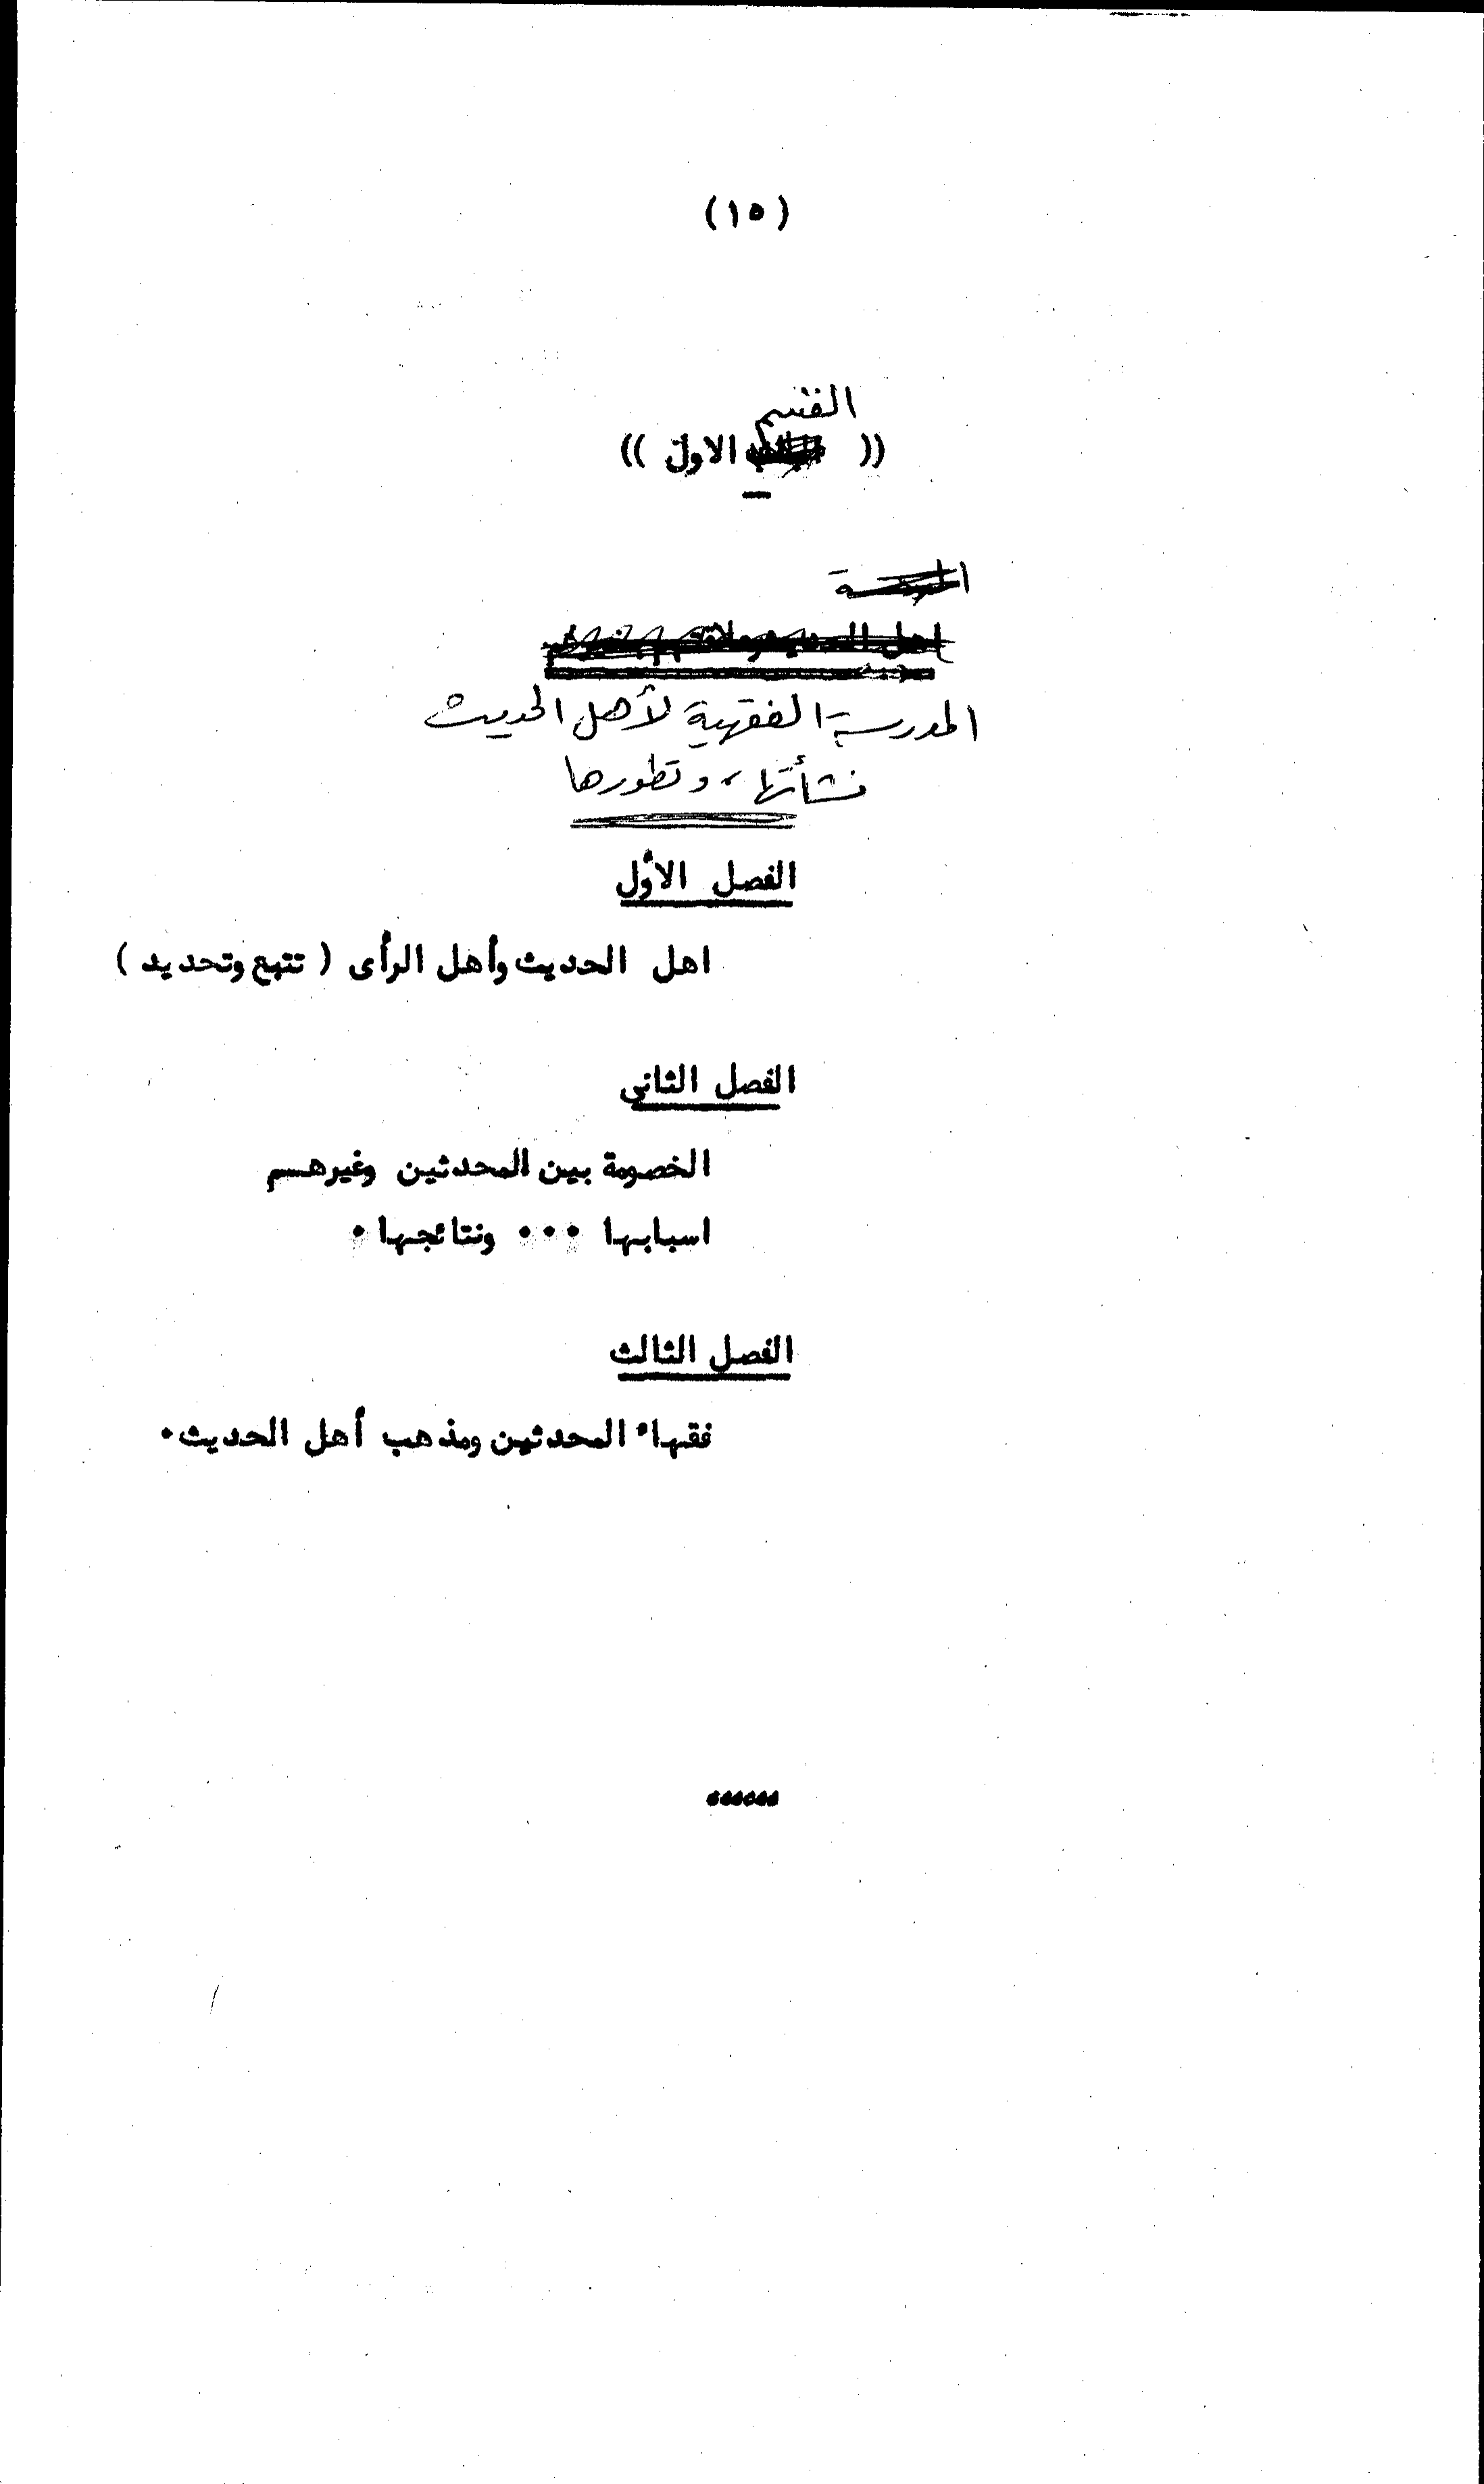 (١٥)
القسم
(( الاول ))
المدرسة الفقهية لأهل الحديث
نشأتها، وتطورها
الفصل الأول
اهل الحديث وأهل الرأى ( تتبع وتحديد )
الفصل الثانى
الخصومة بين المحدثين وغيرهــم
اسبابها ٠٠٠ ونتائجها ٠
الفصل الثالث
فقهاء المحدثين ومذهب أهل الحديث ٠